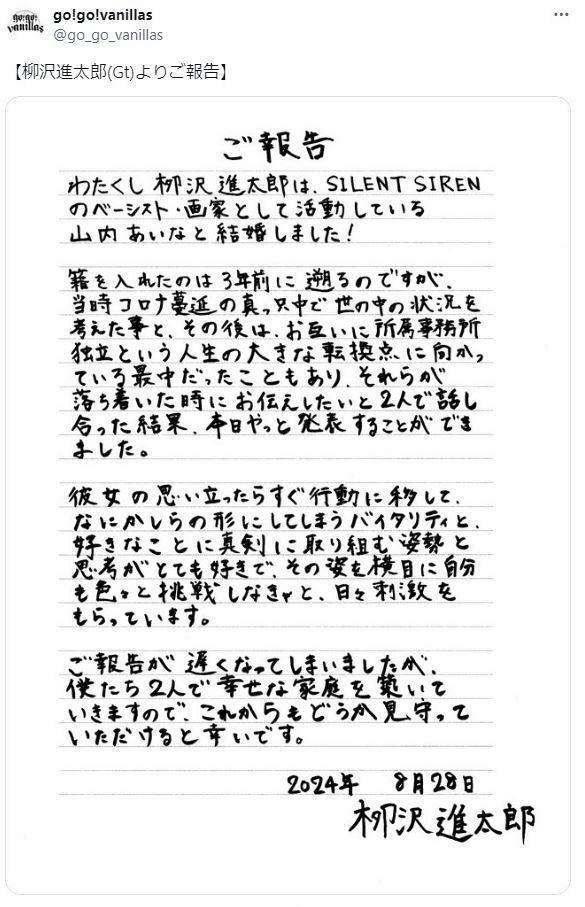 go!go!vanillas
go!go!
vanillas
@go_go_vanillas
【柳沢進太郎(Gt)よりご報告】
ご報告
わたくし 柳沢 進太郎は、SILENT SIREN
のベーシスト・画家として活動している
山内 あいなと 結婚しました!
籍を入れたのは 3年前に 遡るのですが、
当時 コロナ蔓延の真っ只中で 世の中の状況を
考えた事と、その後は、お互いに 所属事務所
独立という 人生の大きな転換点に向かっ
ている最中だったこともあり、それらが
落ち着いた時に お伝えしたいと 2人で話し
合った結果、本日やっと 発表することができ
ました。
彼女の思い立ったらすぐ行動に移して、
なにかしらの形にしてしまうバイタリティと、
好きなことに真剣に取り組む姿勢と
思考がとても好きで、その姿を横目に自分
も色々と 挑戦しなきゃと、日々刺激を
もらっています。
ご報告が 遅くなってしまいましたが、
僕たち 2人で 幸せな家庭を築いて
いきますので、これからもどうか見守って
いただけると幸いです。
2024年 8月28日
柳沢 進太郎